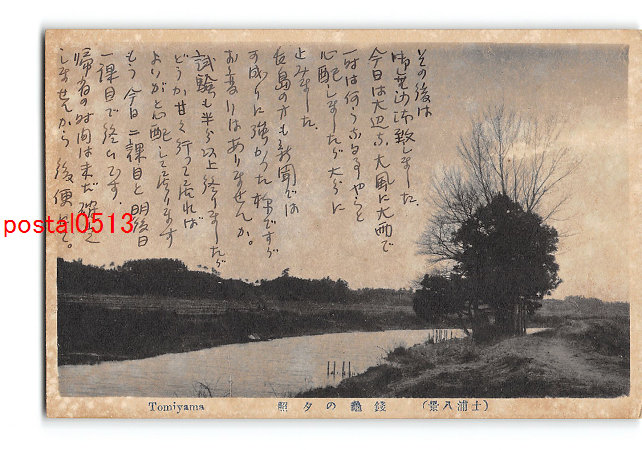 その後は
御無沙汰致しました。
今日は大辺な大風に大雨で
一時は何うなるやらと
心配しましたが大分に
止みました。
島の方も新聞では
可成りに強かった様ですが
お変りはありませんか。
試験も半分以上終りましたが
どうか甘く行って居れば
よいがと心配して居ります
もう今日二課目と明後日
一課目で終いです。
帰省の時間は未だ
しませんから後便にて。
postal0513
Tomiyama
(土浦八景) 銭亀の夕照